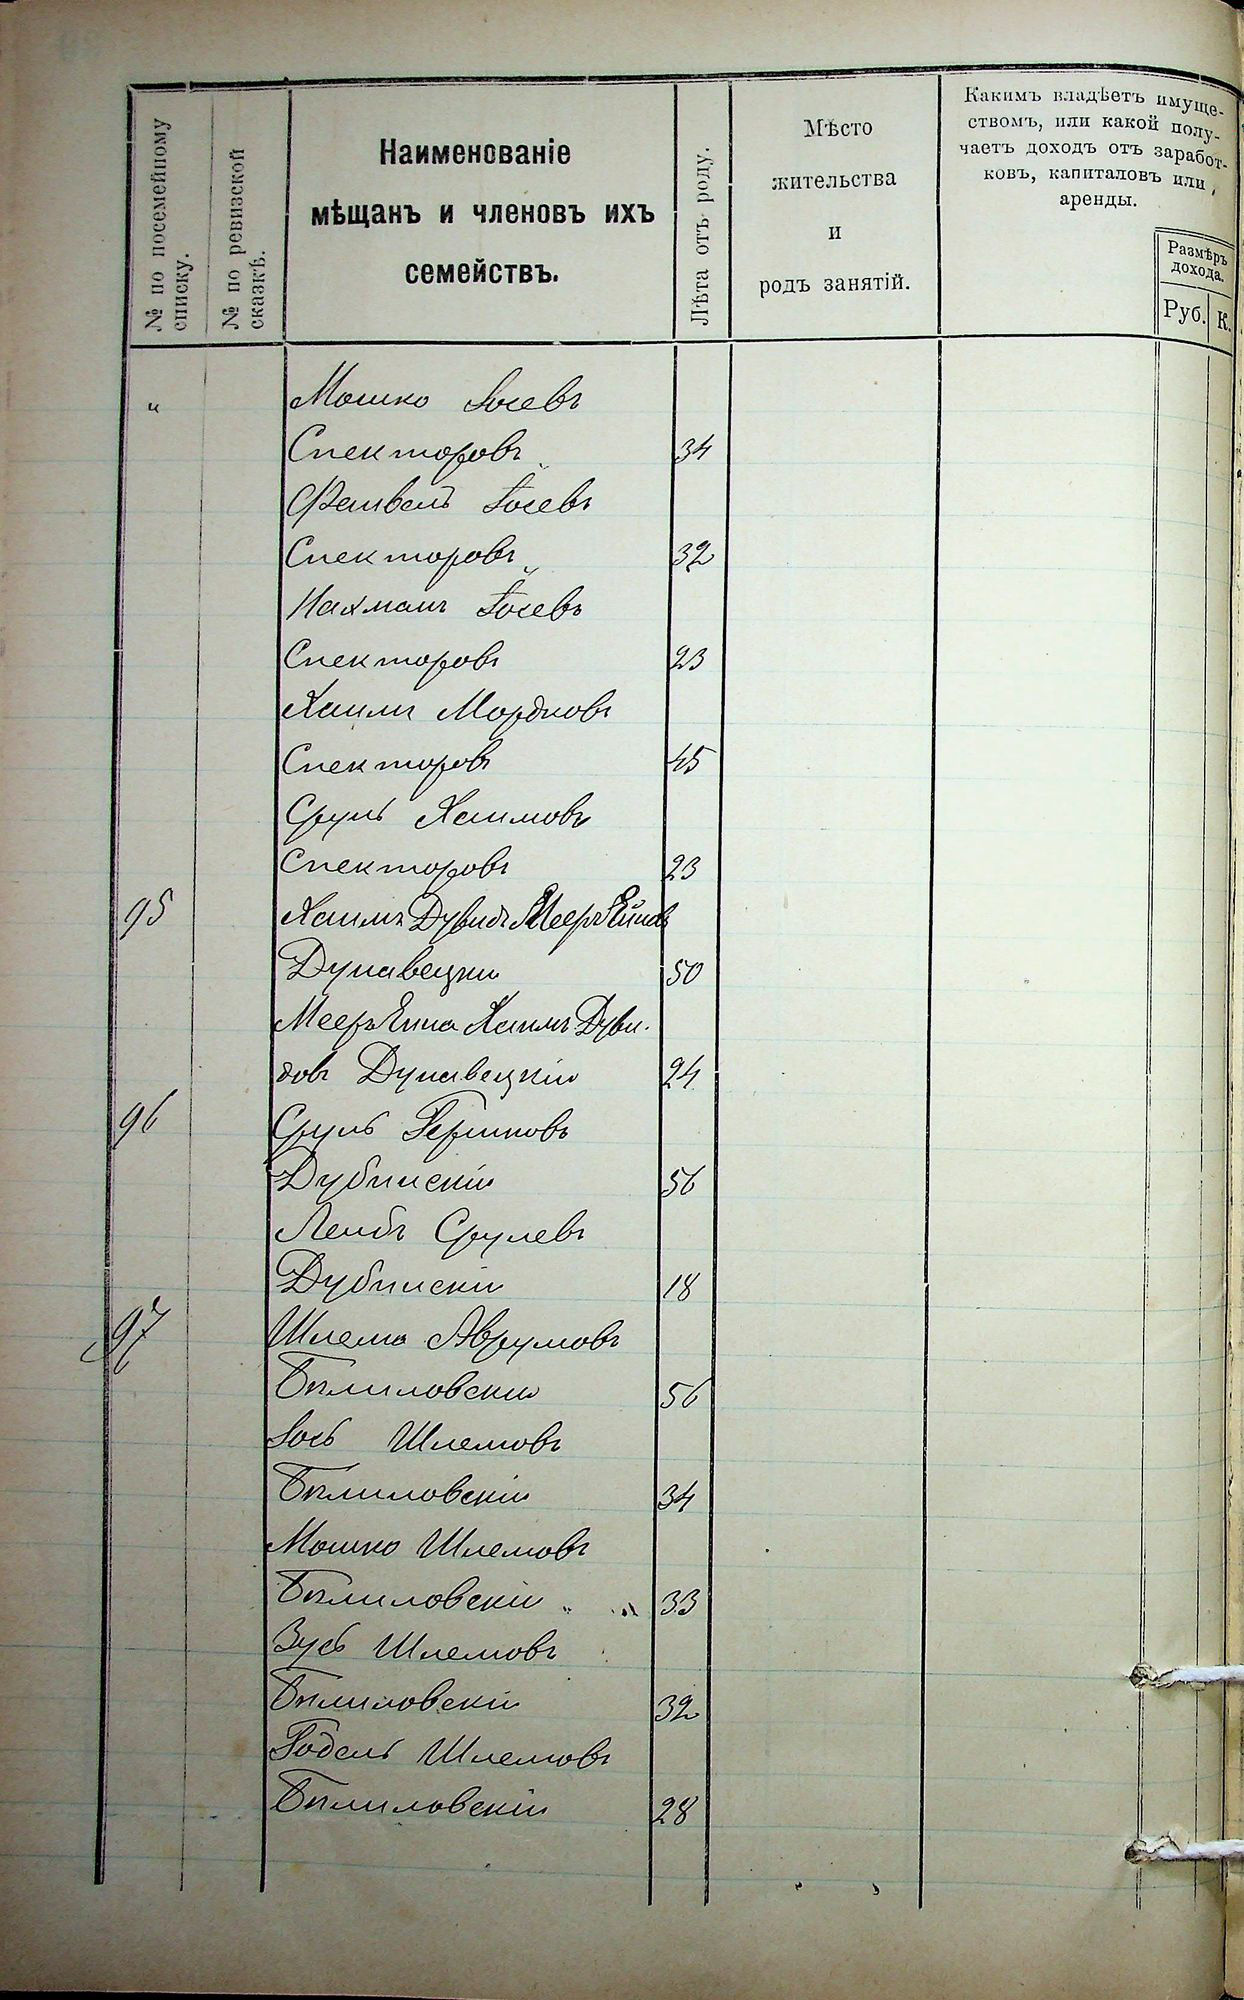 № по посемейному
списку.
№ по ревизской
сказкѣ.
Наименованіе
мѣщанъ и членовъ ихъ
семействъ.
Лѣта отъ роду.
Мѣсто
жительства
и
родъ занятій.
Какимъ владѣетъ имуще-
ствомъ, или какой полу-
чаетъ доходъ отъ заработ-
ковъ, капиталовъ или
аренды.
Размѣръ
дохода.
Руб. К.
" Мошко Iосевъ
Спекторовъ 34
Файвель Iосевъ
Спекторовъ 32
Нахманъ Iосевъ
Спекторовъ 23
Хаимъ Мордковъ
Спекторовъ 45
Сруль Хаимовъ
Спекторовъ 23
95 Хаимъ Дувидъ Мееръ Ейнов
Дунавецкій 50
Мееръ Ейна Хаимъ Дуви-
довъ Дунавецкій 24
96 Сруль Гершковъ
Дубинскій 56
Лейбъ Срулевъ
Дубинскій 18
97 Шлема Аврумовъ
Билиловскій 56
Iось Шлемовъ
Билиловскій 34
Мошко Шлемовъ
Билиловскій 33
Зусь Шлемовъ
Билиловскій 32
Годель Шлемовъ
Билиловскій 28